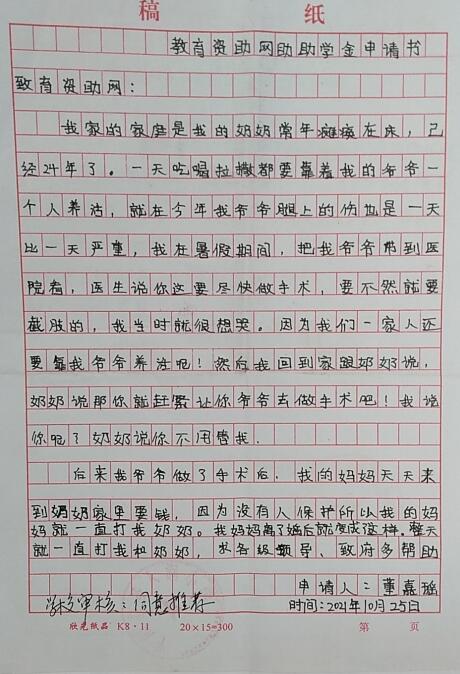 稿 纸
教育资助网助助学金申请书
致育资助网：
我家的家庭是我的奶奶常年瘫痪在床，己
经24年了。一天吃喝拉撒都要靠着我的爷爷一
个人养活，就在今年我爷爷腿上的伤也是一天
比一天严重，我在暑假期间，把我爷爷带到医
院看，医生说你这要尽快做手术，要不然就要
截肢的，我当时就很想哭。因为我们一家人还
要靠我爷爷养活呢！然后我回到家跟奶奶说，
奶奶说那你就赶紧让你爷爷去做手术吧！我说
你呢？奶奶说你不用管我.
后来我爷爷做了手术后.我的妈妈天天来
到奶奶家里要钱，因为没有人保护所以我的妈
妈就一直打我奶奶。我妈妈离了婚后就变成这样.整天
就一直打我和奶奶，求各级领导、致府多帮助
申请人：董嘉瑶
学校审核：同意推荐
时间：2021年10月25日
欣光纸品 K8·11 20×15=300 第 页